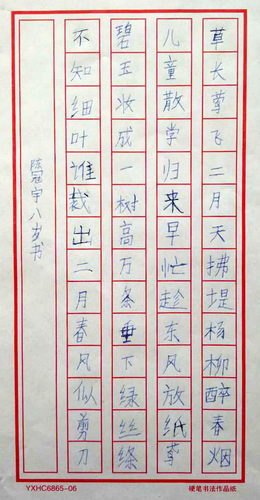 草长莺飞二月天拂堤杨柳醉春烟
儿童散学归来早忙趁东风放纸鸢
碧玉妆成一树高万条垂下绿丝绦
不知细叶谁裁出二月春风似剪刀
陈冠宇八岁书
YXHC6865-06
硬笔书法作品纸